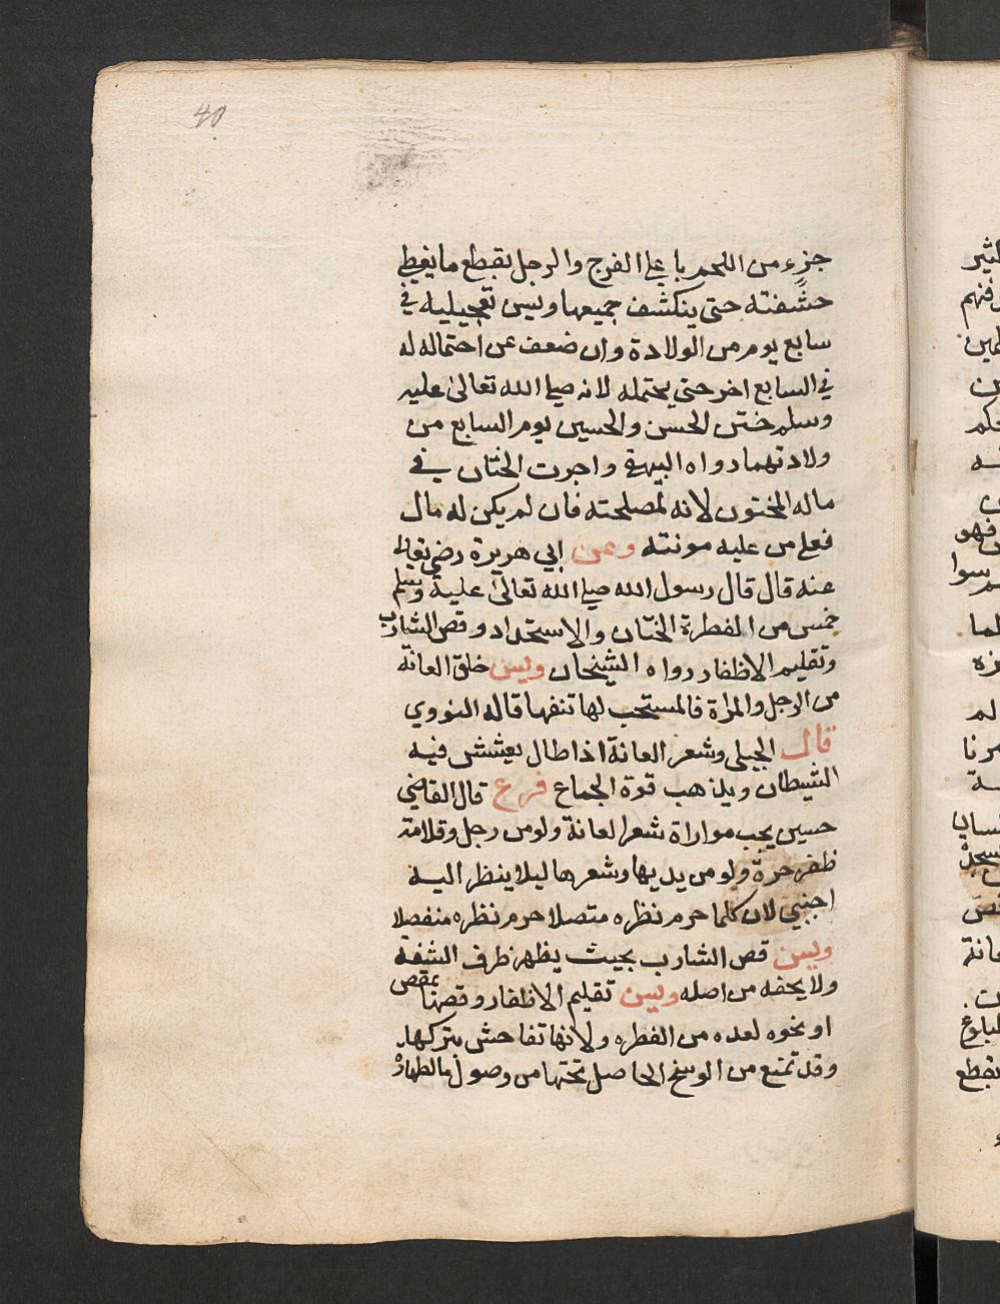 40
جزء من اللحم باعلى الفرج والرجل بقطع ما يغطي
حشفته حتى ينكشف جميعها ويسن تعجيليه في
سابع يوم من الولادة وان ضعف عن احتماله له
في السابع اخر حتى يحتمله لانه صلى الله تعالى عليه
وسلم ختن الحسن والحسين يوم السابع من
ولادتهما رواه البيهقي واجرت الختان في
ماله المختون لانه لمصلحته فان لم يكن له مال
فعلى من عليه مونته وعن ابي هريرة رضي تعالى
عنه قال قال رسول الله صلى الله تعالى عليه وسلم
خمس من الفطرة الختان والاستحداد وقص الشارب
وتقليم الاظفار رواه الشيخان ويسن حلق العانة
من الرجل والمراة فالمستحب لها تنفها قاله النووي
قال الجيلي وشعر العانة اذا طال يعشش فيه
الشيطان ويذهب قوة الجماع فرع قال القاضي
حسين يجب مواراة شعر العانة ولو من رجل وقلامة
ظفر حرة ولو من يديها وشعرها ليلا ينظر اليه
اجنبي لان كلما حرم نظره متصلا حرم نظره منفصلا
ويسن قص الشارب بحيث يظهر طرف الشفة
ولا يحفه من اصله ويسن تقليم الاظفار وقصها بمقص
او نحوه لعده من الفطره ولانها تفاحش بتركها
وقد تمنع من الوسخ الحاصل تحتها من وصول ما الطهارة